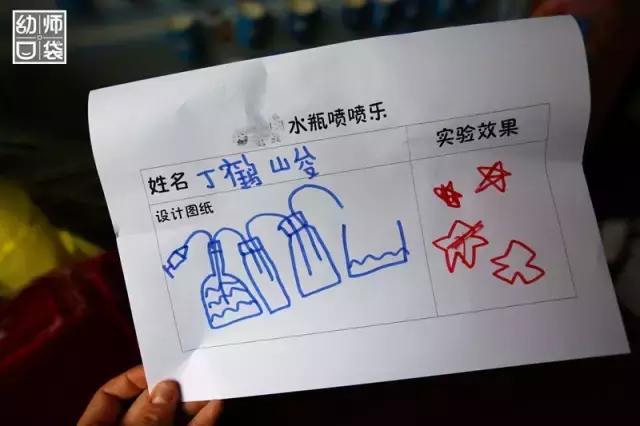 幼师
口袋
水瓶喷喷乐
实验效果
姓名 丁鹤 山
设计图纸